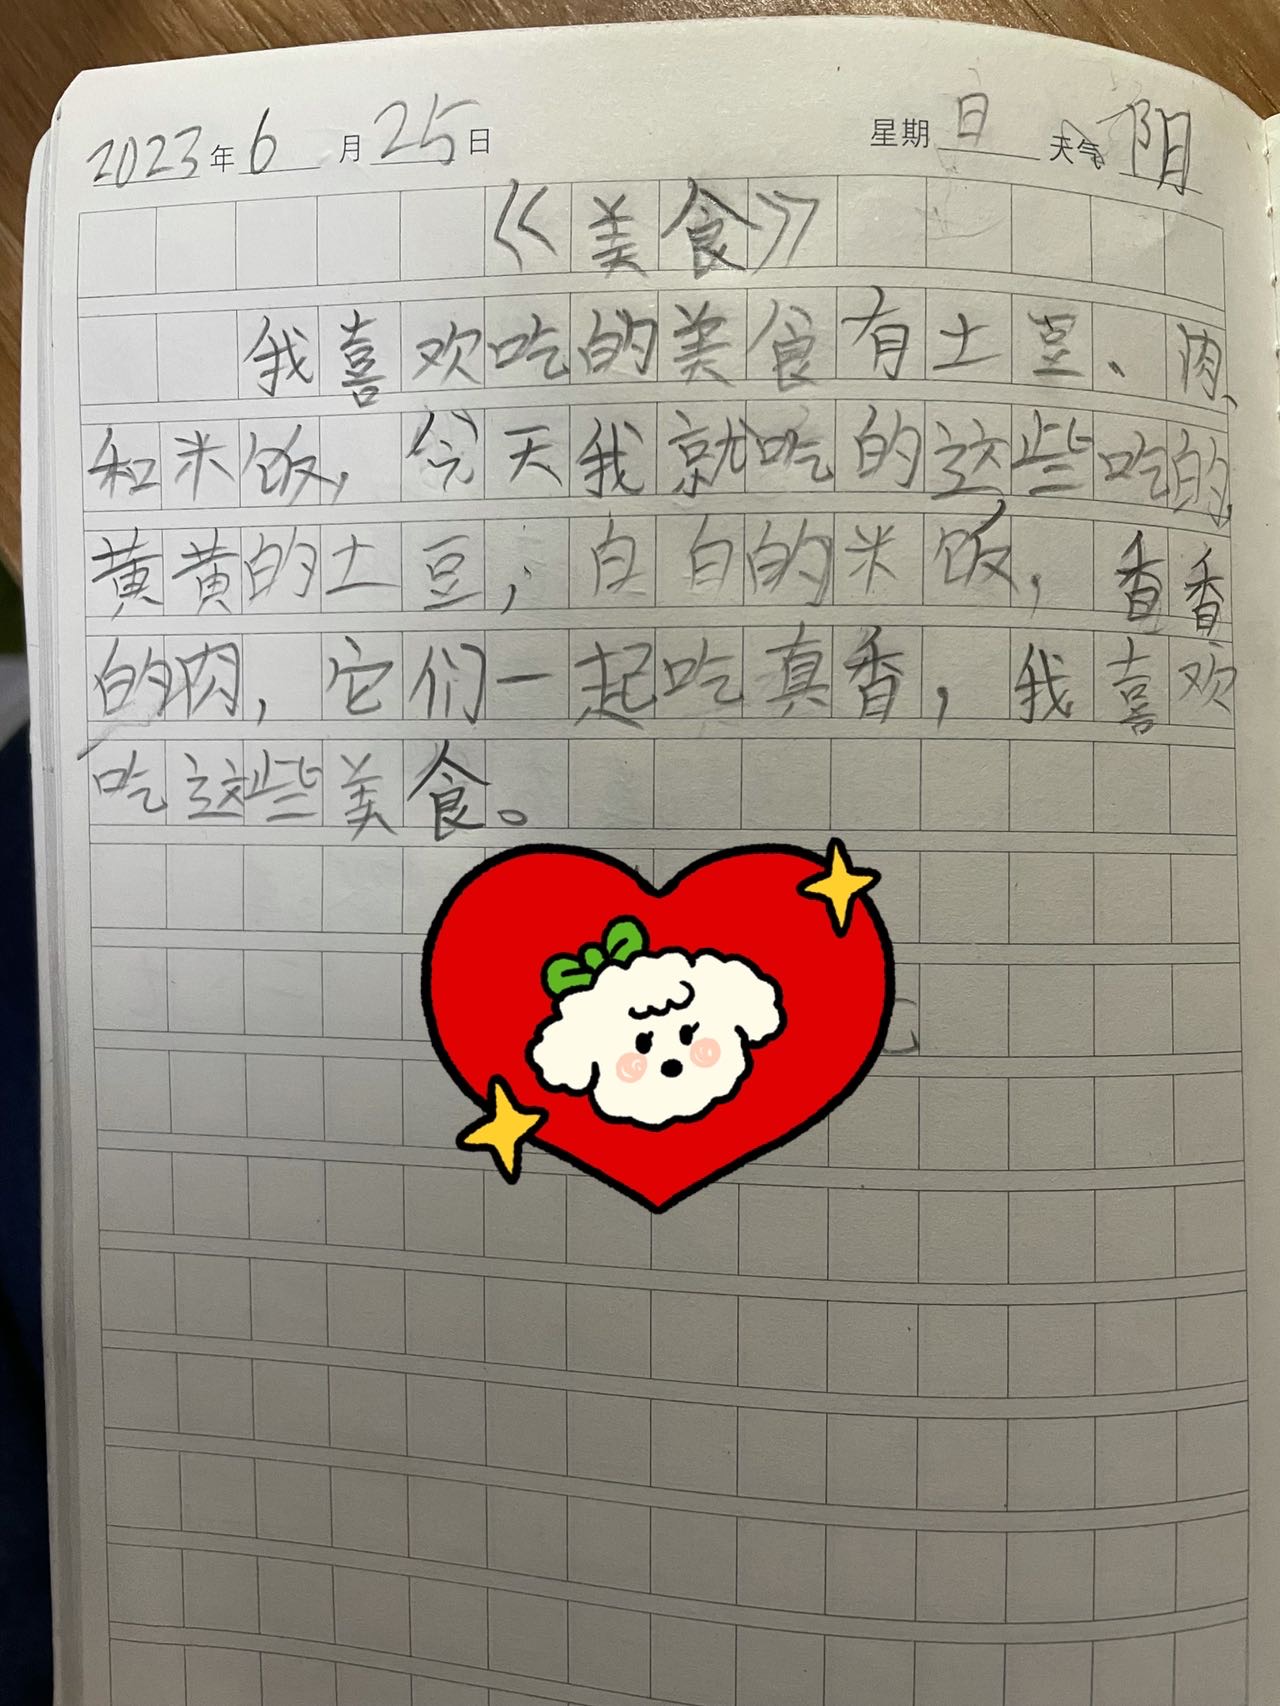 2023年6月25日 星期日 天气阴
《美食》
我喜欢吃的美食有土豆、肉、
和米饭，今天我就吃的这些吃的
黄黄的土豆，白白的米饭，香香
的肉，它们一起吃真香，我喜欢
吃这些美食。